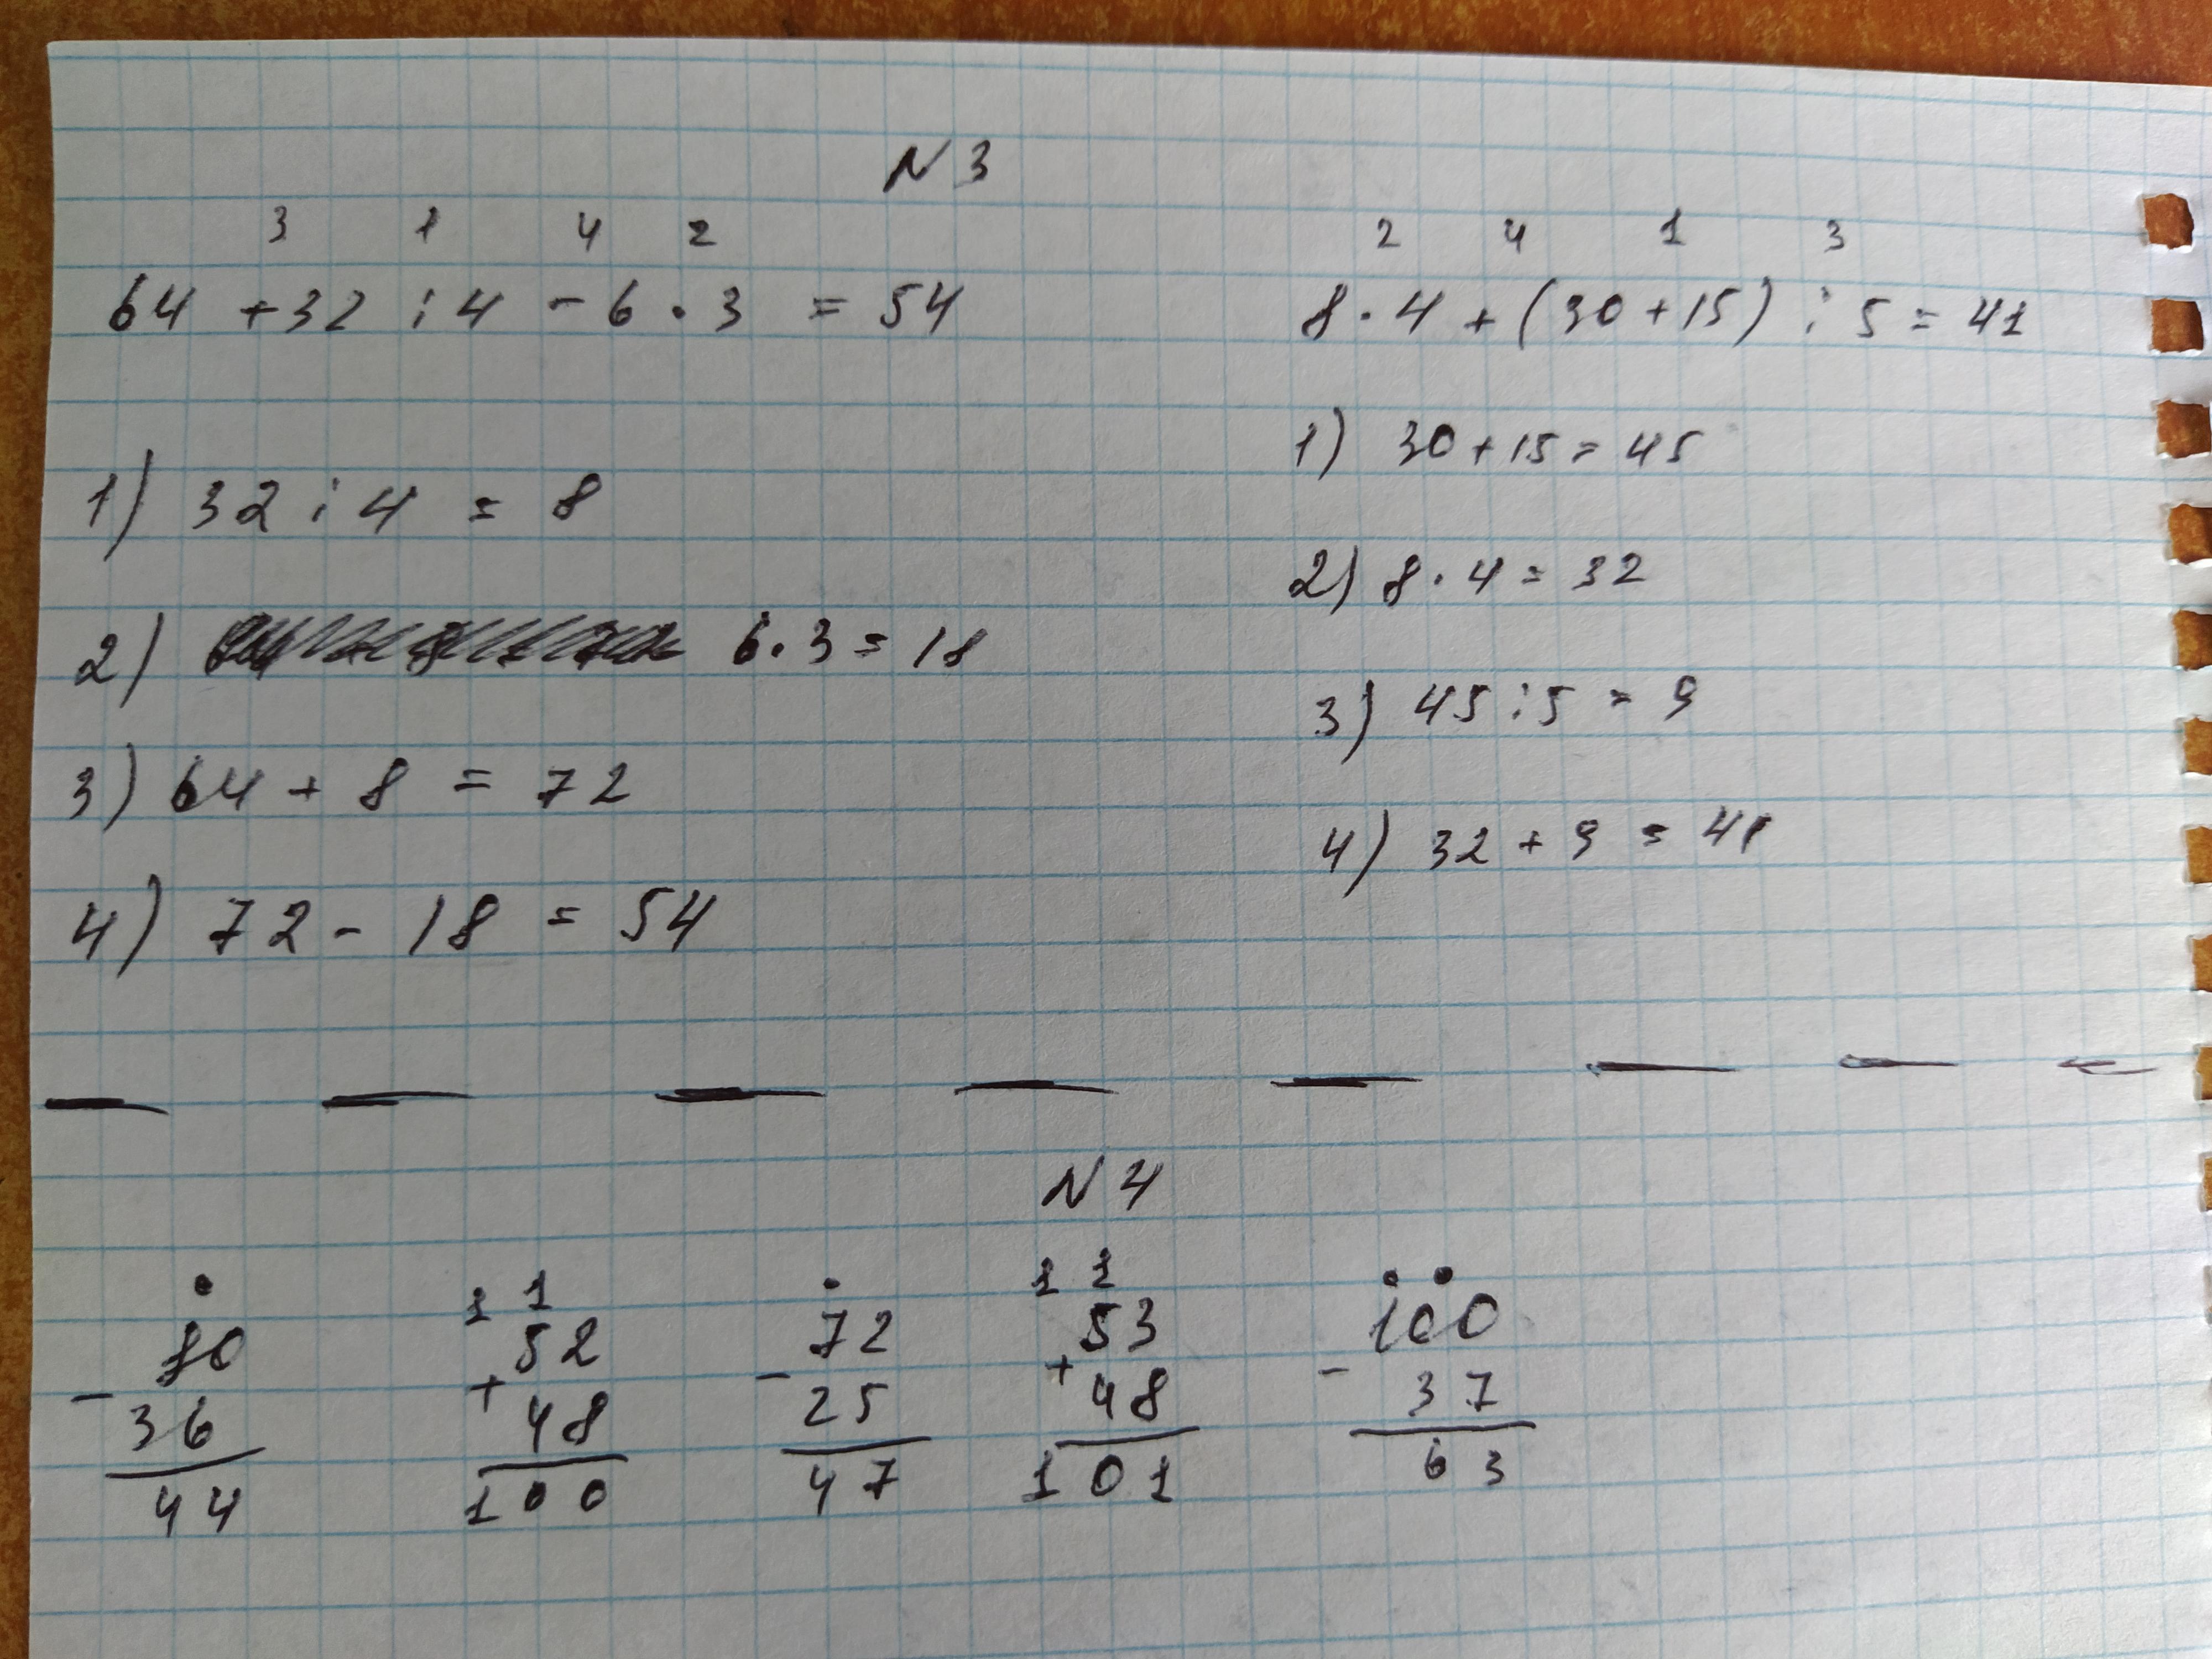 N 3
3 1 4 2
64 + 32 : 4 - 6 · 3 = 54
1) 32 : 4 = 8
2) 6 · 3 = 18
3) 64 + 8 = 72
4) 72 - 18 = 54
2 4 1 3
8 · 4 + (30 + 15) : 5 = 41
1) 30 + 15 = 45
2) 8 · 4 = 32
3) 45 : 5 = 9
4) 32 + 9 = 41
N 4
80
- 36
44
1 1
52
+ 48
100
72
- 25
47
1 1
53
+ 48
101
100
- 37
63